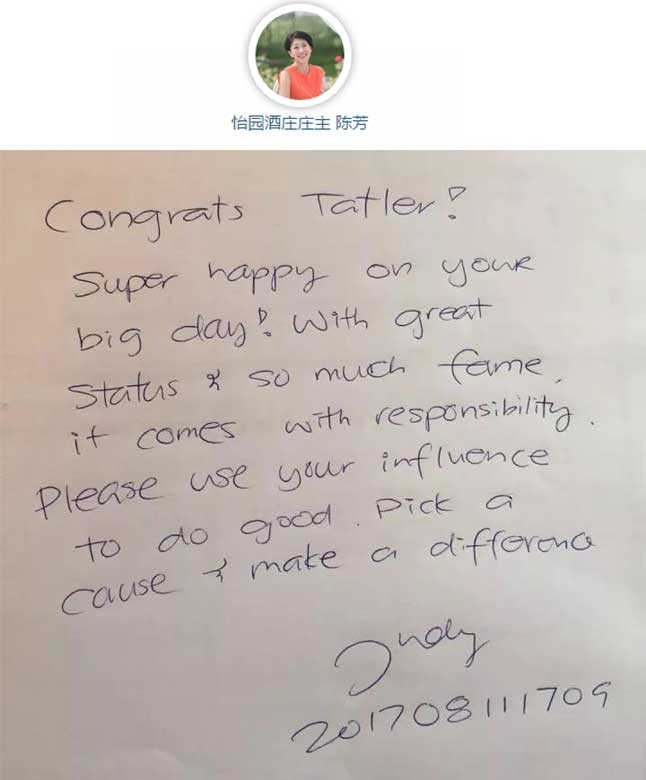 怡园酒庄庄主 陈芳
Congrats Tatler!
Super happy on your
big day! With great
Status & so much fame,
it comes with responsibility.
Please use your influence
to do good. Pick a
cause & make a difference
Judy
201708111709